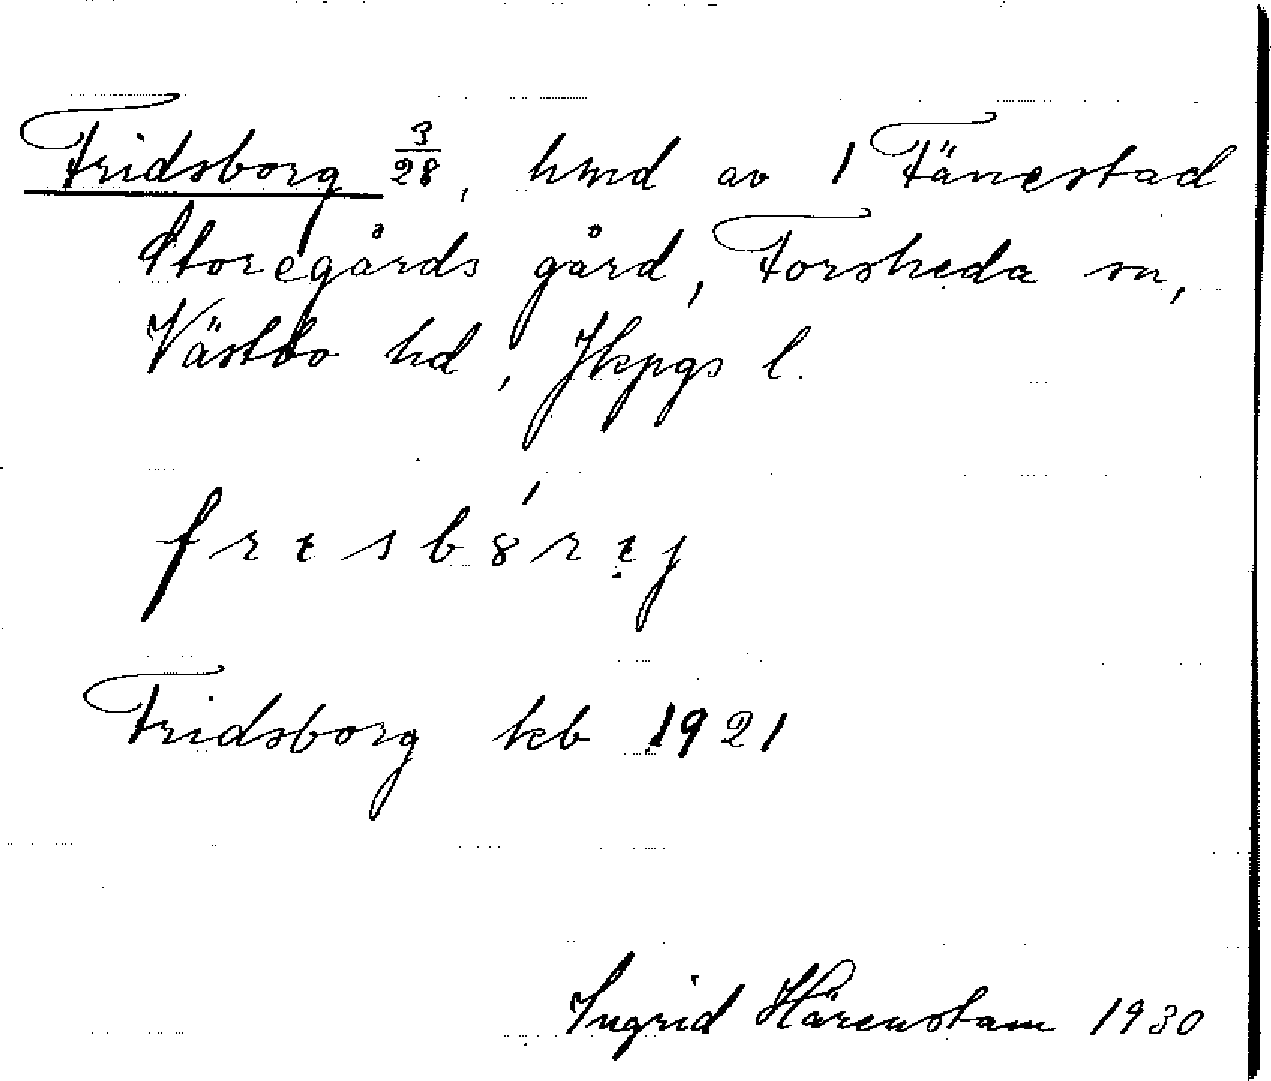 Fridsborg 3/28, hmd av 1 Fänestad
Storegårds gård, Forsheda sn,
Västbo hd, Jkpgs l.
Fridsborg kb 1921
Ingrid Härenstam 1930